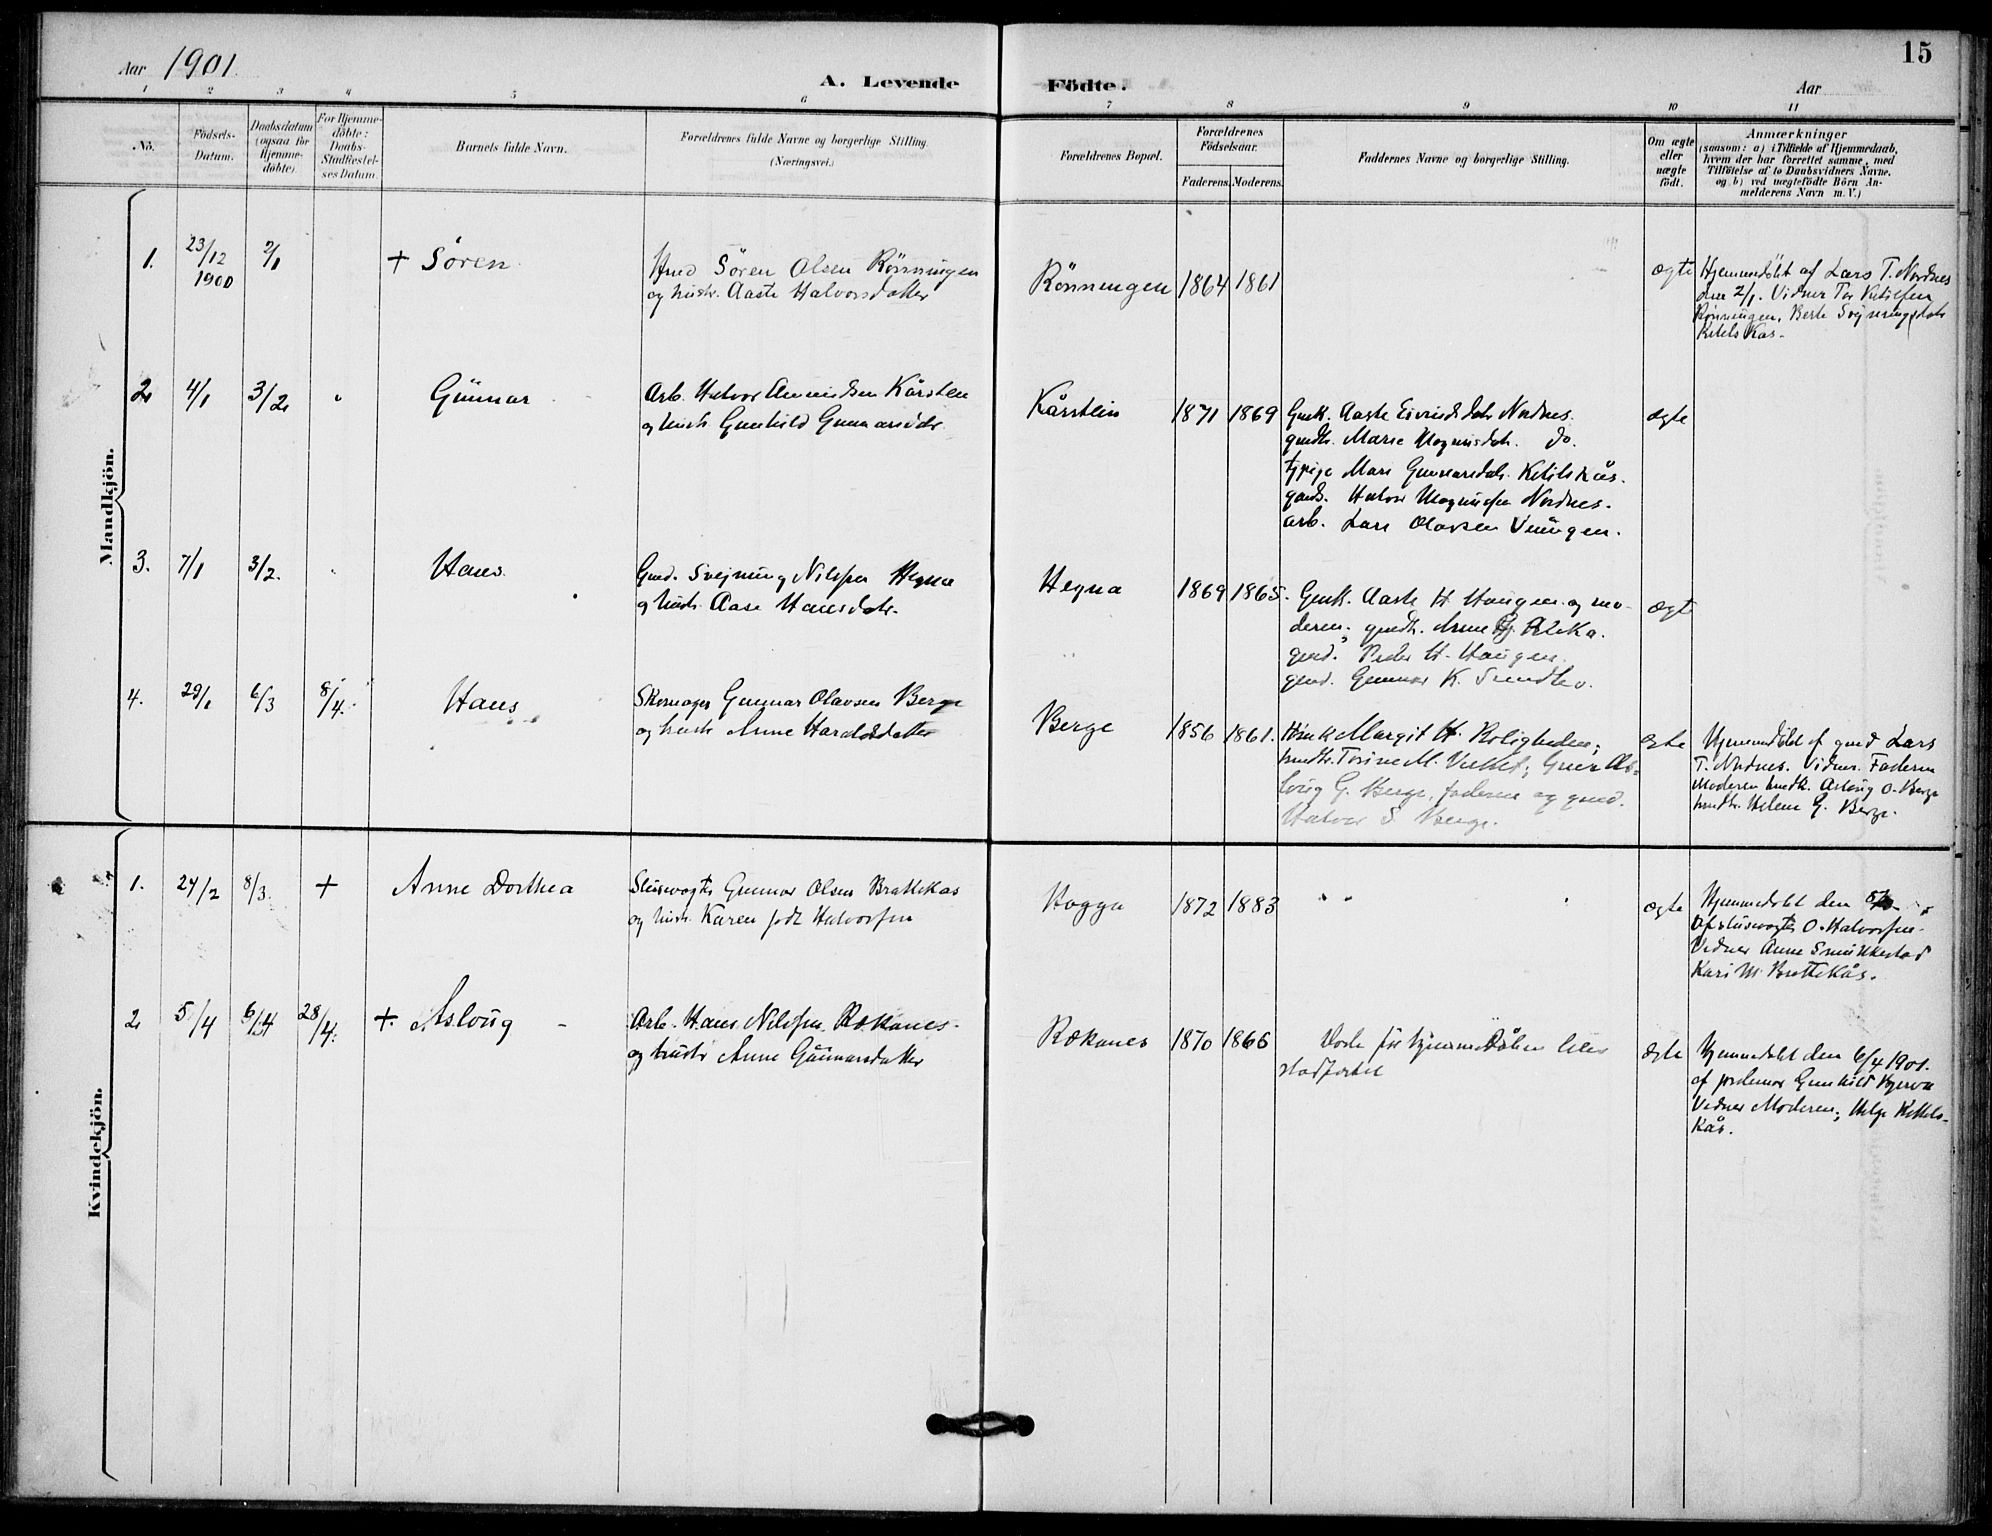 15
Aar 1901.
A. Levende
Födte.
Aar
1 2 3 4 5 6 7 8 9 10 11
No.
Födsels-
Datum.
Daabsdatum
(ogsaa for
Hjemme-
döbte).
For Hjemme-
döbte:
Daabs-
Stadfæstel-
ses Datum.
Barnets fulde Navn.
Forældrenes fulde Navne og borgerlige Stilling.
(Næringsvei.)
Forældrenes Bopæl.
Forældrenes
Födselsaar.
Faderens. Moderens.
Faddernes Navne og borgerlige Stilling.
Om ægte
eller
uægte
födt.
Anmærkninger
(saasom: a) i Tilfælde af Hjemmedaab,
hvem der har forrettet samme, med
Tilföielse af to Daabsvidners Navne,
og b) ved uægtefödte Börn An-
melderens Navn m. V.)
Mandkjön.
1.
23/12
1900
2/1
+ Sören
Sören Olsen Rönningen
og hustr. Aaste Halvorsdatter
Rönningen
1864 1861
ægte
Hjemmedöbt af Lars T. Nordnes
den 2/1. Vidner Tor Ketilsen
Rönningen, Berte Svejningsdatr
Ketelskås.
2.
4/1
3/2
"
Gunnar
Arb. Halvor Amundsen Kårsten
og hustr. Gunhild Gunnarsdtr.
Kårstein
1871 1869
Gmk. Aaste Eivindsdatr Nordnes.
gmdtr. Marie Magnusdatr. do.
tjpige Mari Gunnarsdatr. Ketilskås.
gmds. Halvor Magnussen Nordnes.
arb. Lars Olavsen
ægte
3.
7/1
3/2.
"
Hans
Gmd. Svejnung Nilssen Hegna
og hustr. Aase Hansdatr.
Hegna
1869 1865.
Gmk. Aaste H. Haugen og mo-
deren; gmdtr. Anne
gmd. Peder H. Haugen
gmd. Gunnar K.
ægte
4.
29/1
6/3
8/4.
Hans
Skomager Gunnar Olavsen Berge
og hustr. Anne Haraldsdatter
Berge
1856 1861.
Margit H. Roligheden;
Torine M. As-
loug G. Berge, faderen og gmd.
Halvor S. Berge.
ægte
Hjemmedöbt af gmd Lars
T. Nordnes. Vidner. Faderen
Moderen Aslaug O. Berge
Helene G. Berge.
Kvindekjön.
1.
24/2
8/3.
+
Anne Dorthea
Slusevogter Gunnar Olsen Brattekas
og hustr. Karen födt Halvorsen
Hogga
1872 1883
" "
ægte
Hjemmedöbt den 8/3
af slusevogter O. Halvorsen.
Vidner Anne
Kari M. Brattekås.
2
5/4
6/4
28/4.
+ Asloug
Arb. Hans Nilssen Rækanes.
og hustr Anne Gunnarsdatter
Rækanes
1870 1866
Döde för hjemmedåben blev
stadfæstet
ægte
Hjemmedöbt den 6/4 1901.
af jordemor Gunhild
Vidner Moderen; Helge Kittels-
kås.